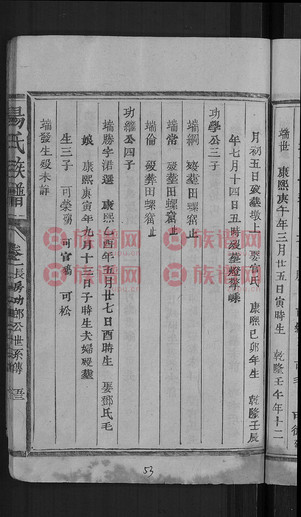 端世 康熙庚午年三月廿五日寅時生 乾隆壬午年十二
月初五日歿葬墩上 娶官氏 康熙己卯年生 乾隆壬辰
年七月十四日丑時歿葬
功學公三子
端綱 歿葬田螺窩止
端常 歿葬田螺窩止
端倫 歿葬田螺窩止
功 公四子
端勝字 選 康熙乙酉年五月廿七日酉時生 娶鄧氏毛
娘 康熙庚寅年九月十三日子時生夫婦歿葬
生三子 可榮 可官 可松
端發生歿未詳
楊氏族譜
卷 長房功 公世系傳
53
族譜网